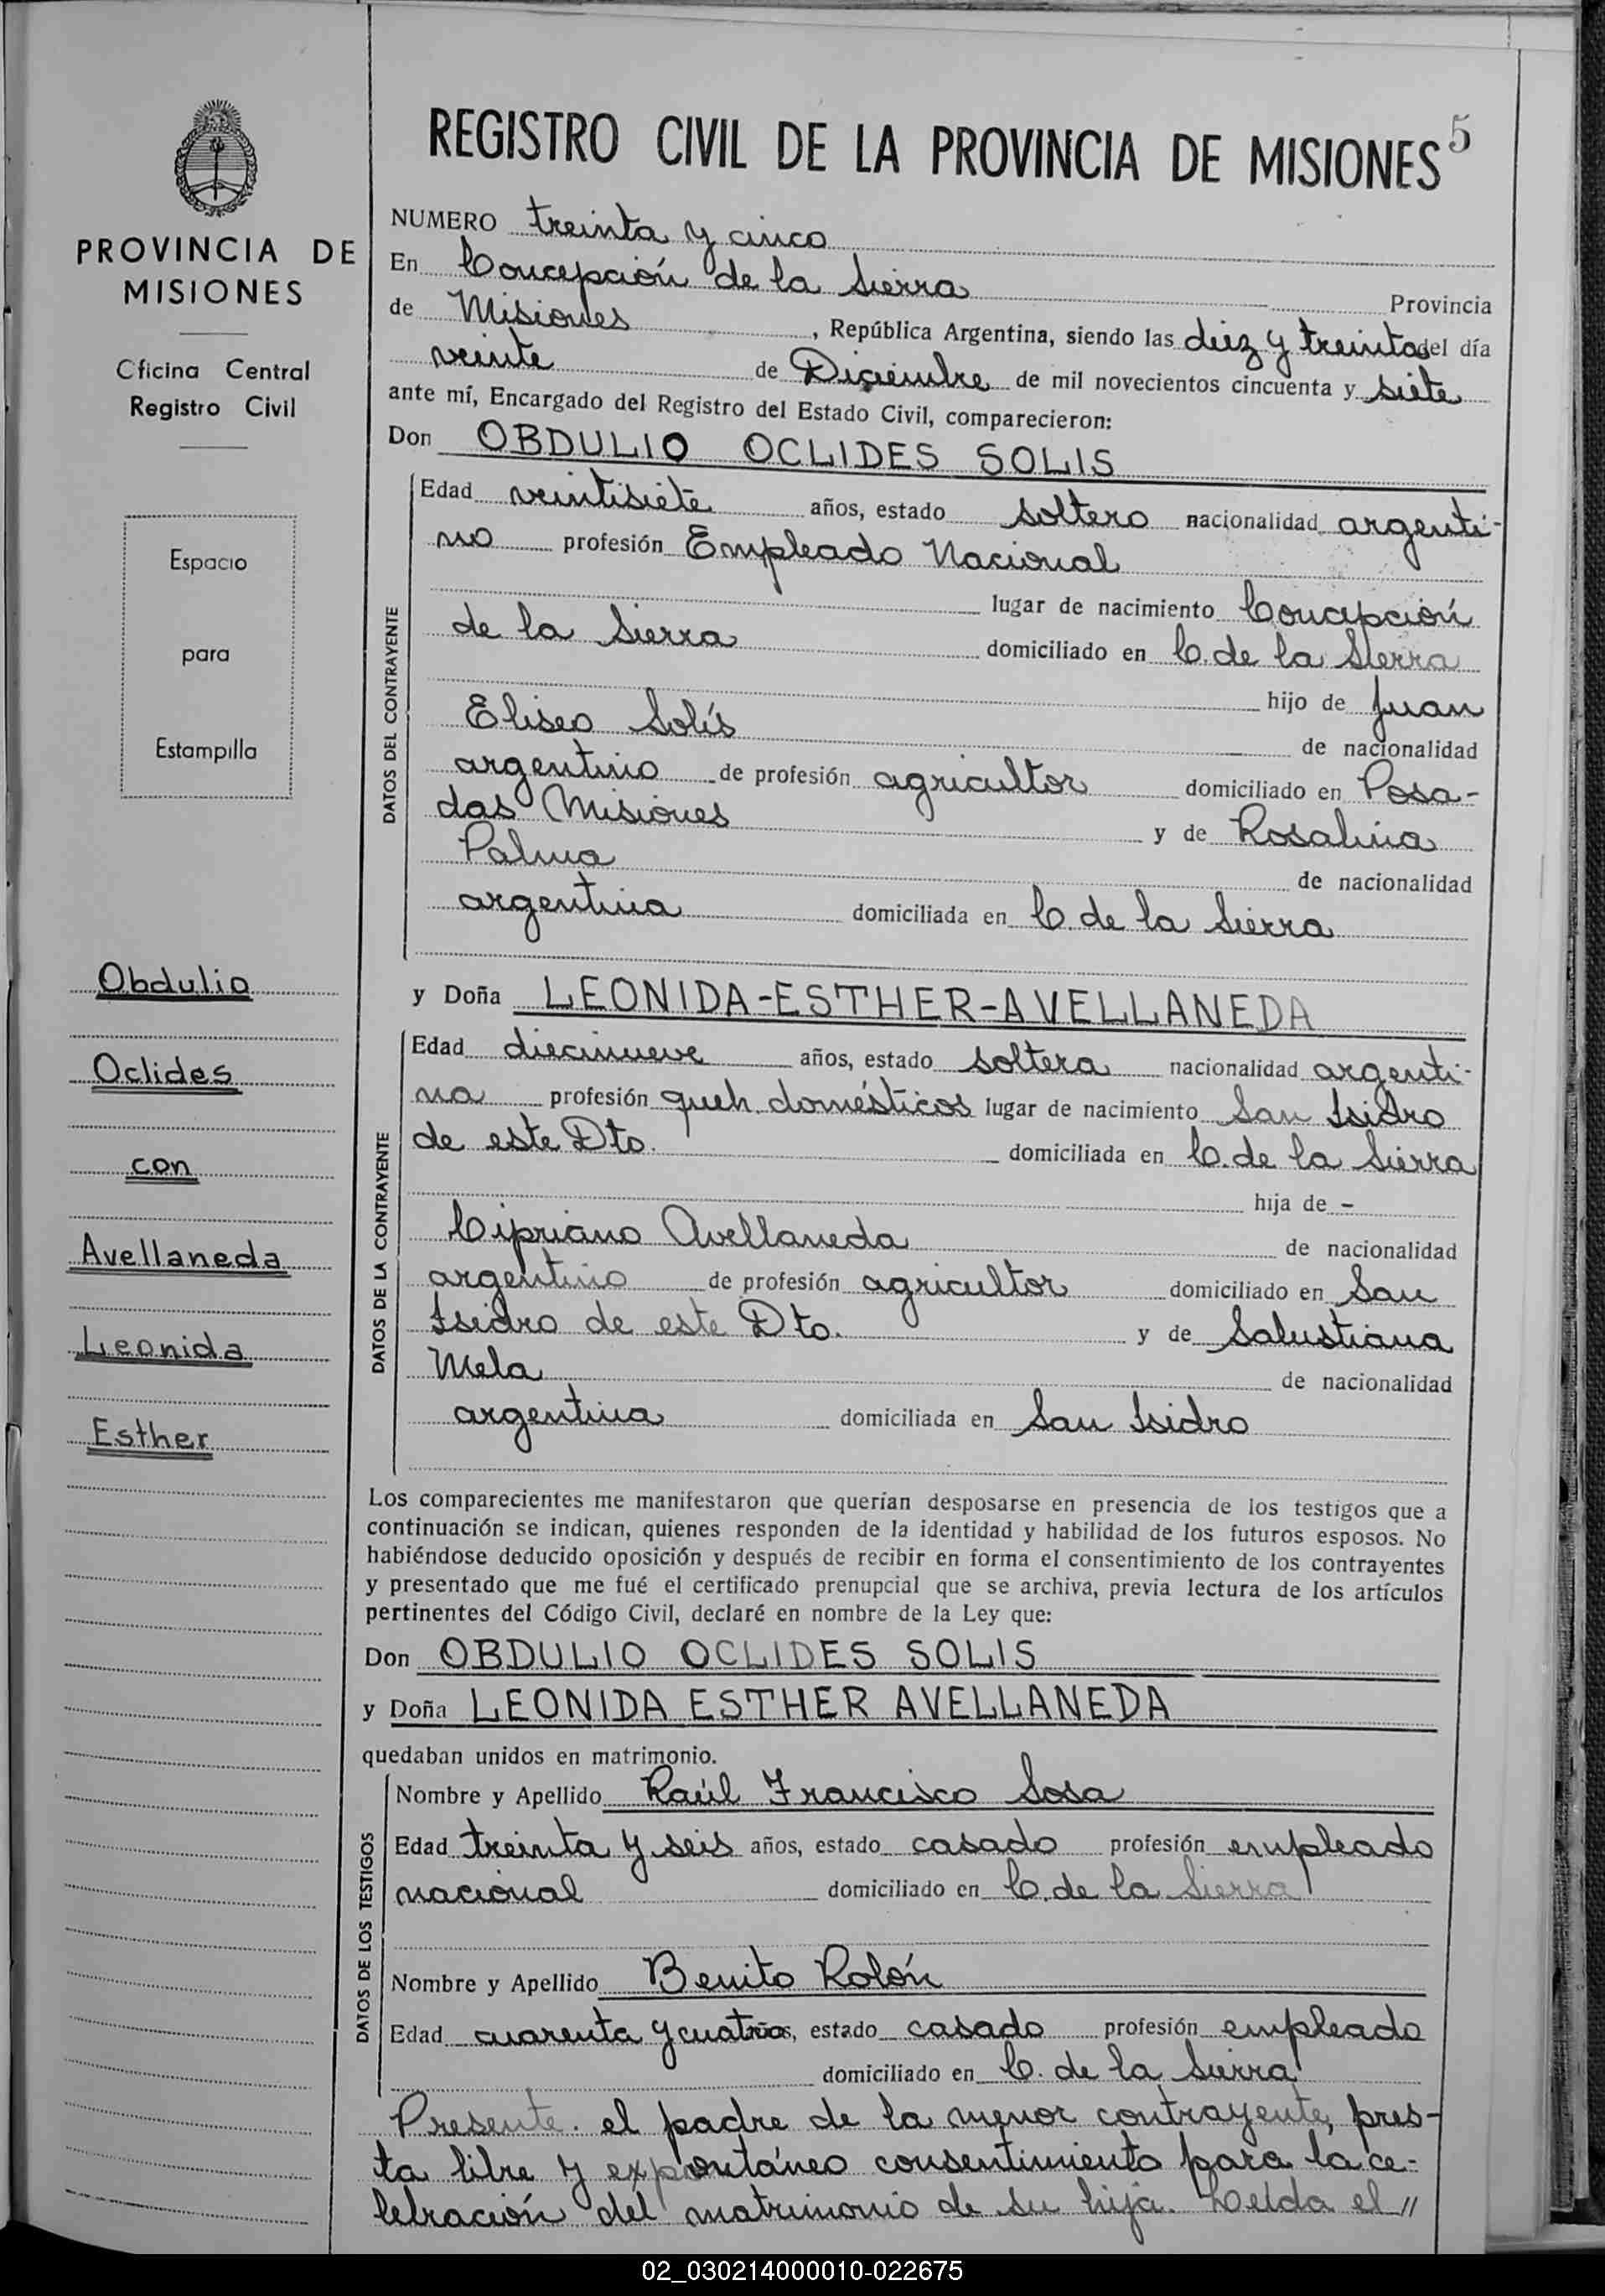 REGISTRO CIVIL DE LA PROVINCIA DE MISIONES 5
PROVINCIA DE
MISIONES
Oficina Central
Registro Civil
Espacio
para
Estampilla
Obdulio
Oclides
con
Avellaneda
Leonida
Esther
NUMERO treinta y cinco
En Concepción de la Sierra Provincia
de Misiones, República Argentina, siendo las diez y treinta del día
veinte de Diciembre de mil novecientos cincuenta y siete
ante mí, Encargado del Registro del Estado Civil, comparecieron:
Don OBDULIO OCLIDES SOLIS
DATOS DEL CONTRAYENTE
Edad veintisiete años, estado soltero nacionalidad argenti-
no profesión Empleado Nacional
lugar de nacimiento Concepción
de la Sierra domiciliado en C. de la Sierra
hijo de Juan
Eliseo Solís de nacionalidad
argentino de profesión agricultor domiciliado en Posa-
das Misiones y de Rosalina
Palma de nacionalidad
argentina domiciliada en C. de la Sierra
y Doña LEONIDA-ESTHER-AVELLANEDA
DATOS DE LA CONTRAYENTE
Edad diecinueve años, estado soltera nacionalidad argenti-
na profesión queh. domésticos lugar de nacimiento San Isidro
de este Dto. domiciliada en C. de la Sierra
hija de -
Cipriano Avellaneda de nacionalidad
argentino de profesión agricultor domiciliado en San
Isidro de este Dto. y de Salustiana
Mela de nacionalidad
argentina domiciliada en San Isidro
Los comparecientes me manifestaron que querían desposarse en presencia de los testigos que a
continuación se indican, quienes responden de la identidad y habilidad de los futuros esposos. No
habiéndose deducido oposición y después de recibir en forma el consentimiento de los contrayentes
y presentado que me fué el certificado prenupcial que se archiva, previa lectura de los artículos
pertinentes del Código Civil, declaré en nombre de la Ley que:
Don OBDULIO OCLIDES SOLIS
y Doña LEONIDA ESTHER AVELLANEDA
quedaban unidos en matrimonio.
DATOS DE LOS TESTIGOS
Nombre y Apellido Raúl Francisco Sosa
Edad treinta y seis años, estado casado profesión empleado
nacional domiciliado en C. de la Sierra
Nombre y Apellido Benito Rolón
Edad cuarenta y cuatro años, estado casado profesión empleado
domiciliado en C. de la Sierra
Presente. el padre de la menor contrayente, pres-
ta libre y expontáneo consentimiento para la ce-
lebración del matrimonio de su hija. Leída el //
02_030214000010-022675